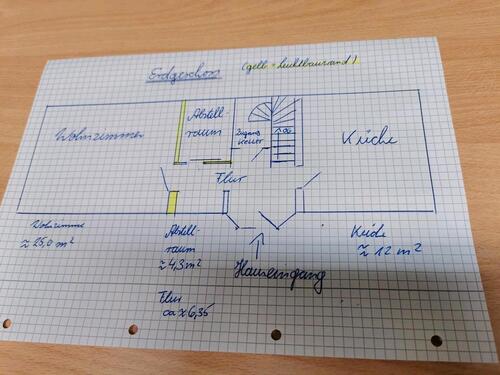 Erdgeschoss
(gelb = Leichtbauwand)
Wohnzimmer
Abstell-
raum
Zugang
Keller
Küche
Flur
Wohnzimme
≈ 25,0 m²
Abstell-
raum
≈ 4,3 m²
Hauseingang
Küche
≈ 12 m²
Flur
ca x 6,35